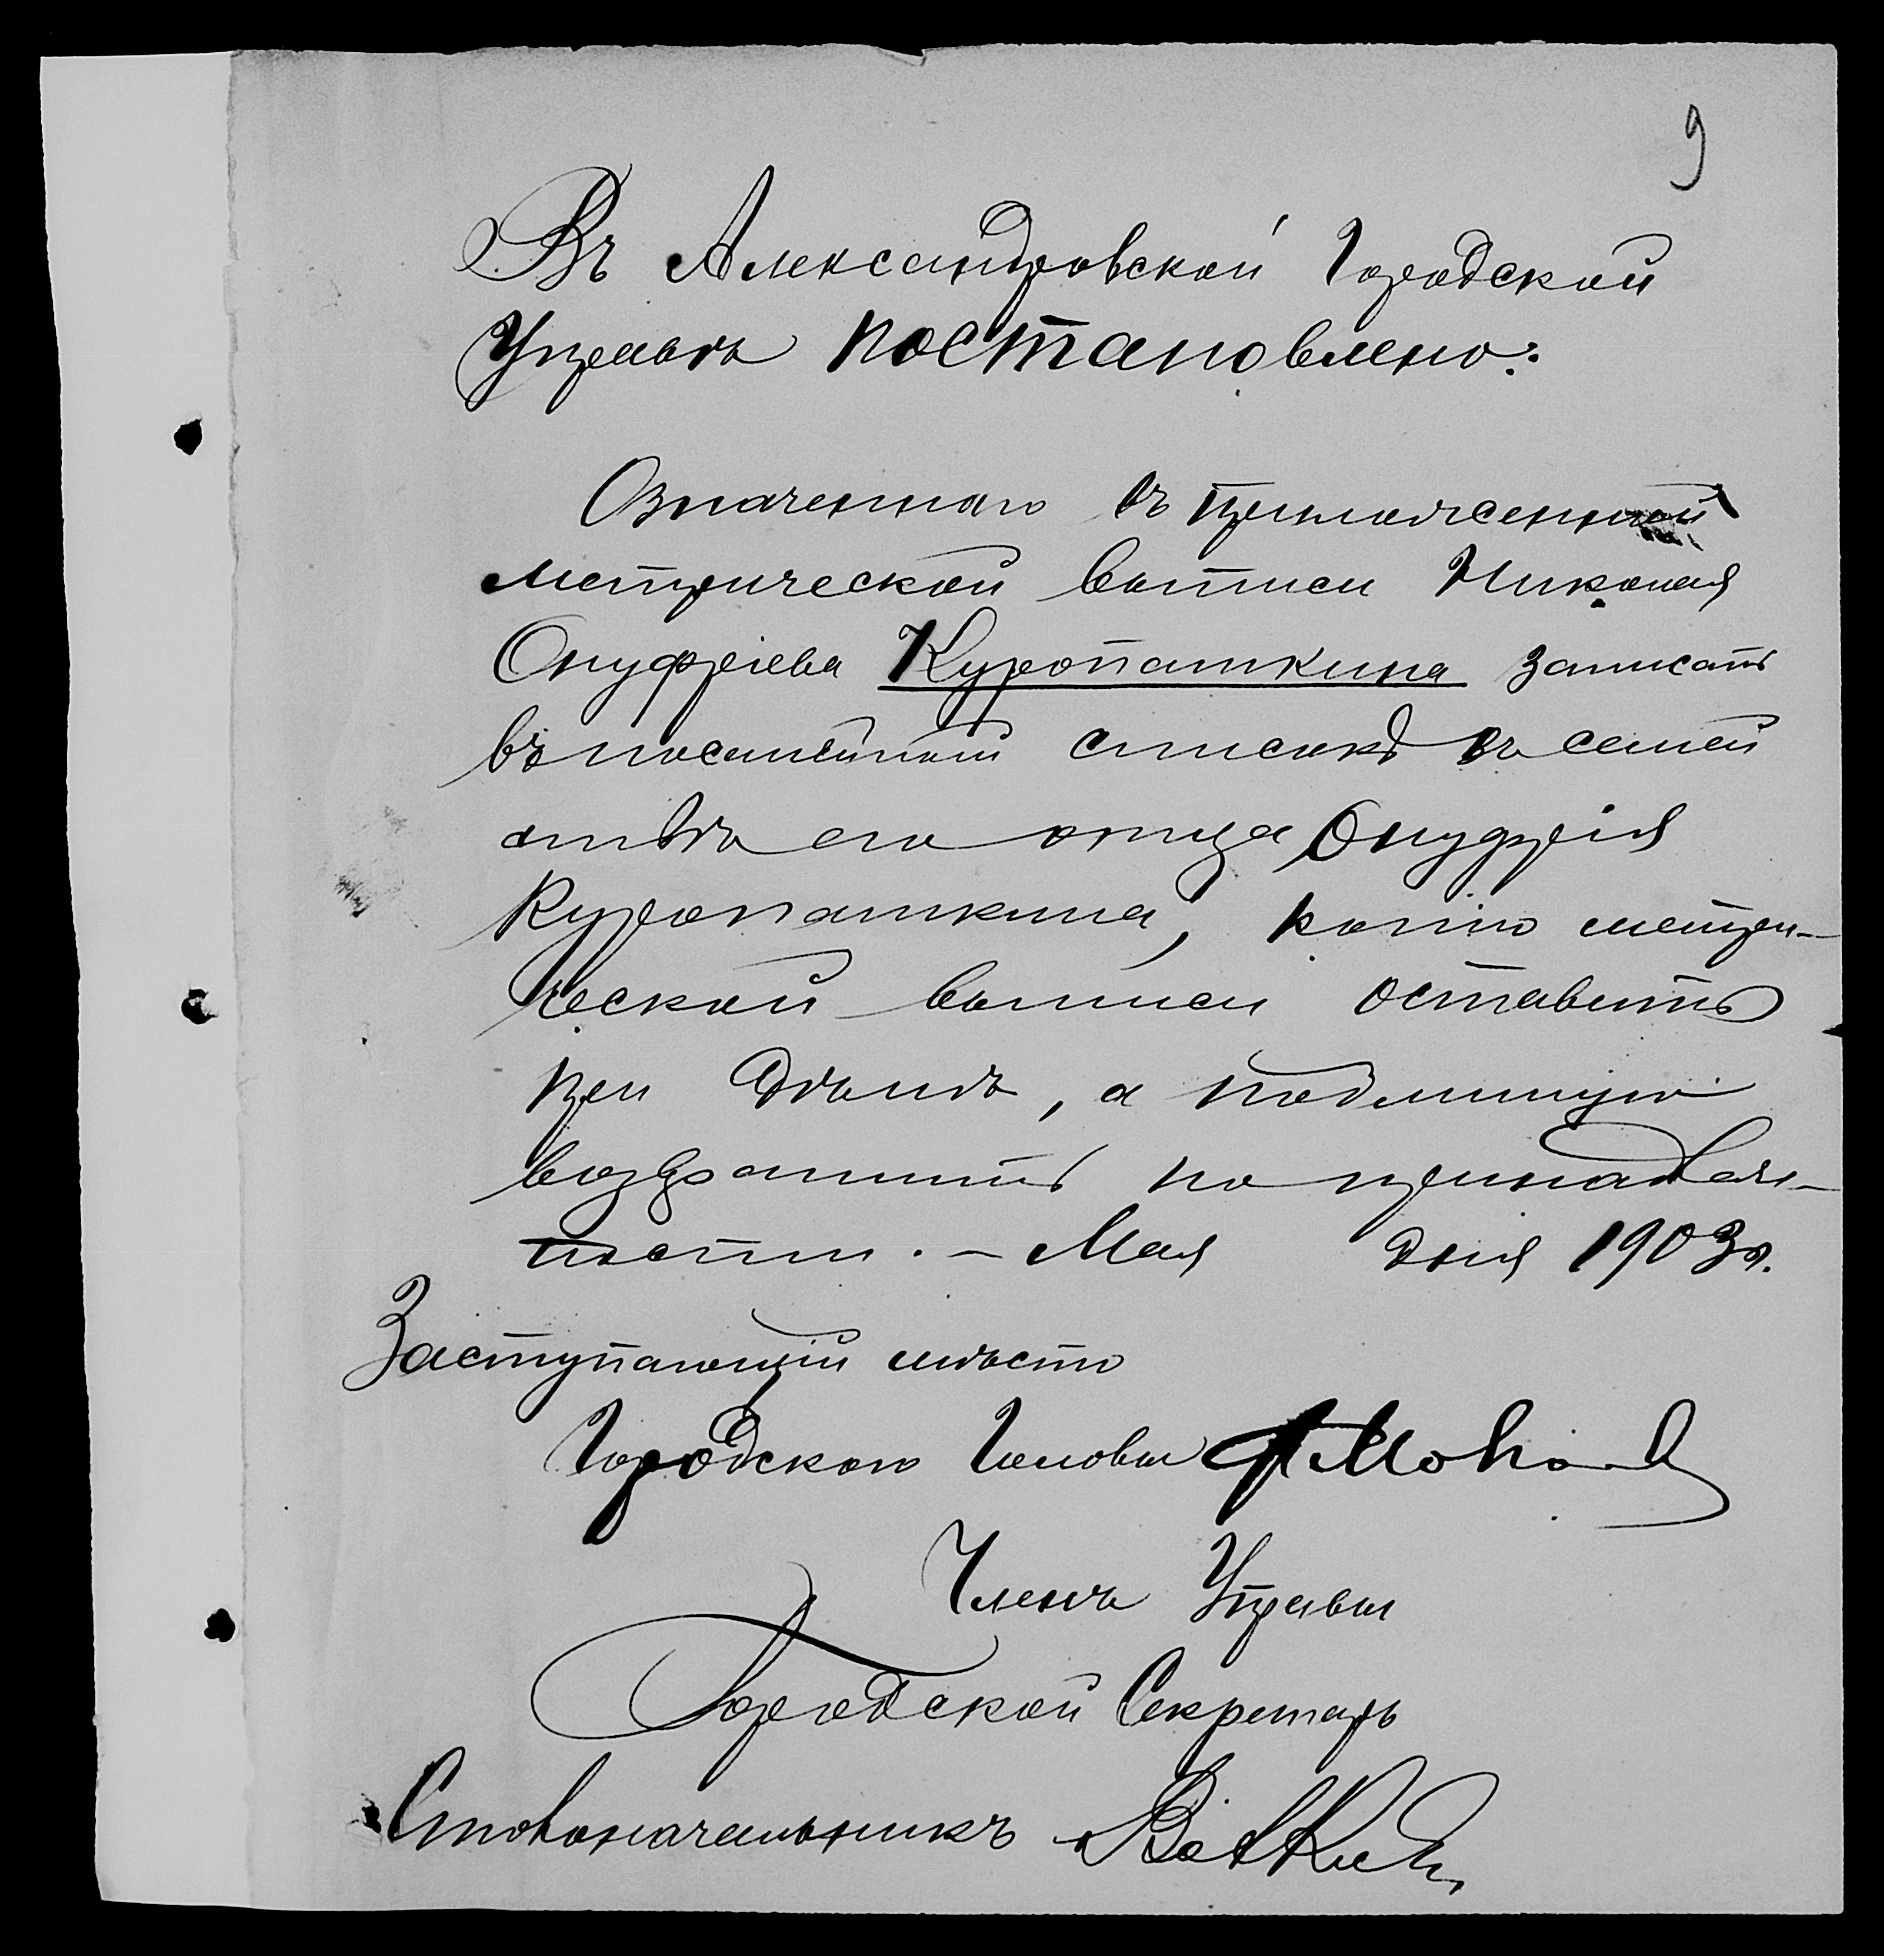 9
Въ Александровской Городской
Управѣ постановлено:
Означеннаго въ приложенной
метрической выписи Николая
Онуфріева Куропаткина записать
въ посемейный списокъ въ семей
ствѣ его отца Онуфрія
Куропаткина, копію метри-
ческой выписи оставить
при дѣлѣ, а подлинную
возвратить по принадлеж-
ности. - Мая дня 1903 г.
Заступающій мѣсто
Городского Головы
Членъ Управы
Городской Секретарь
Столоначальникъ